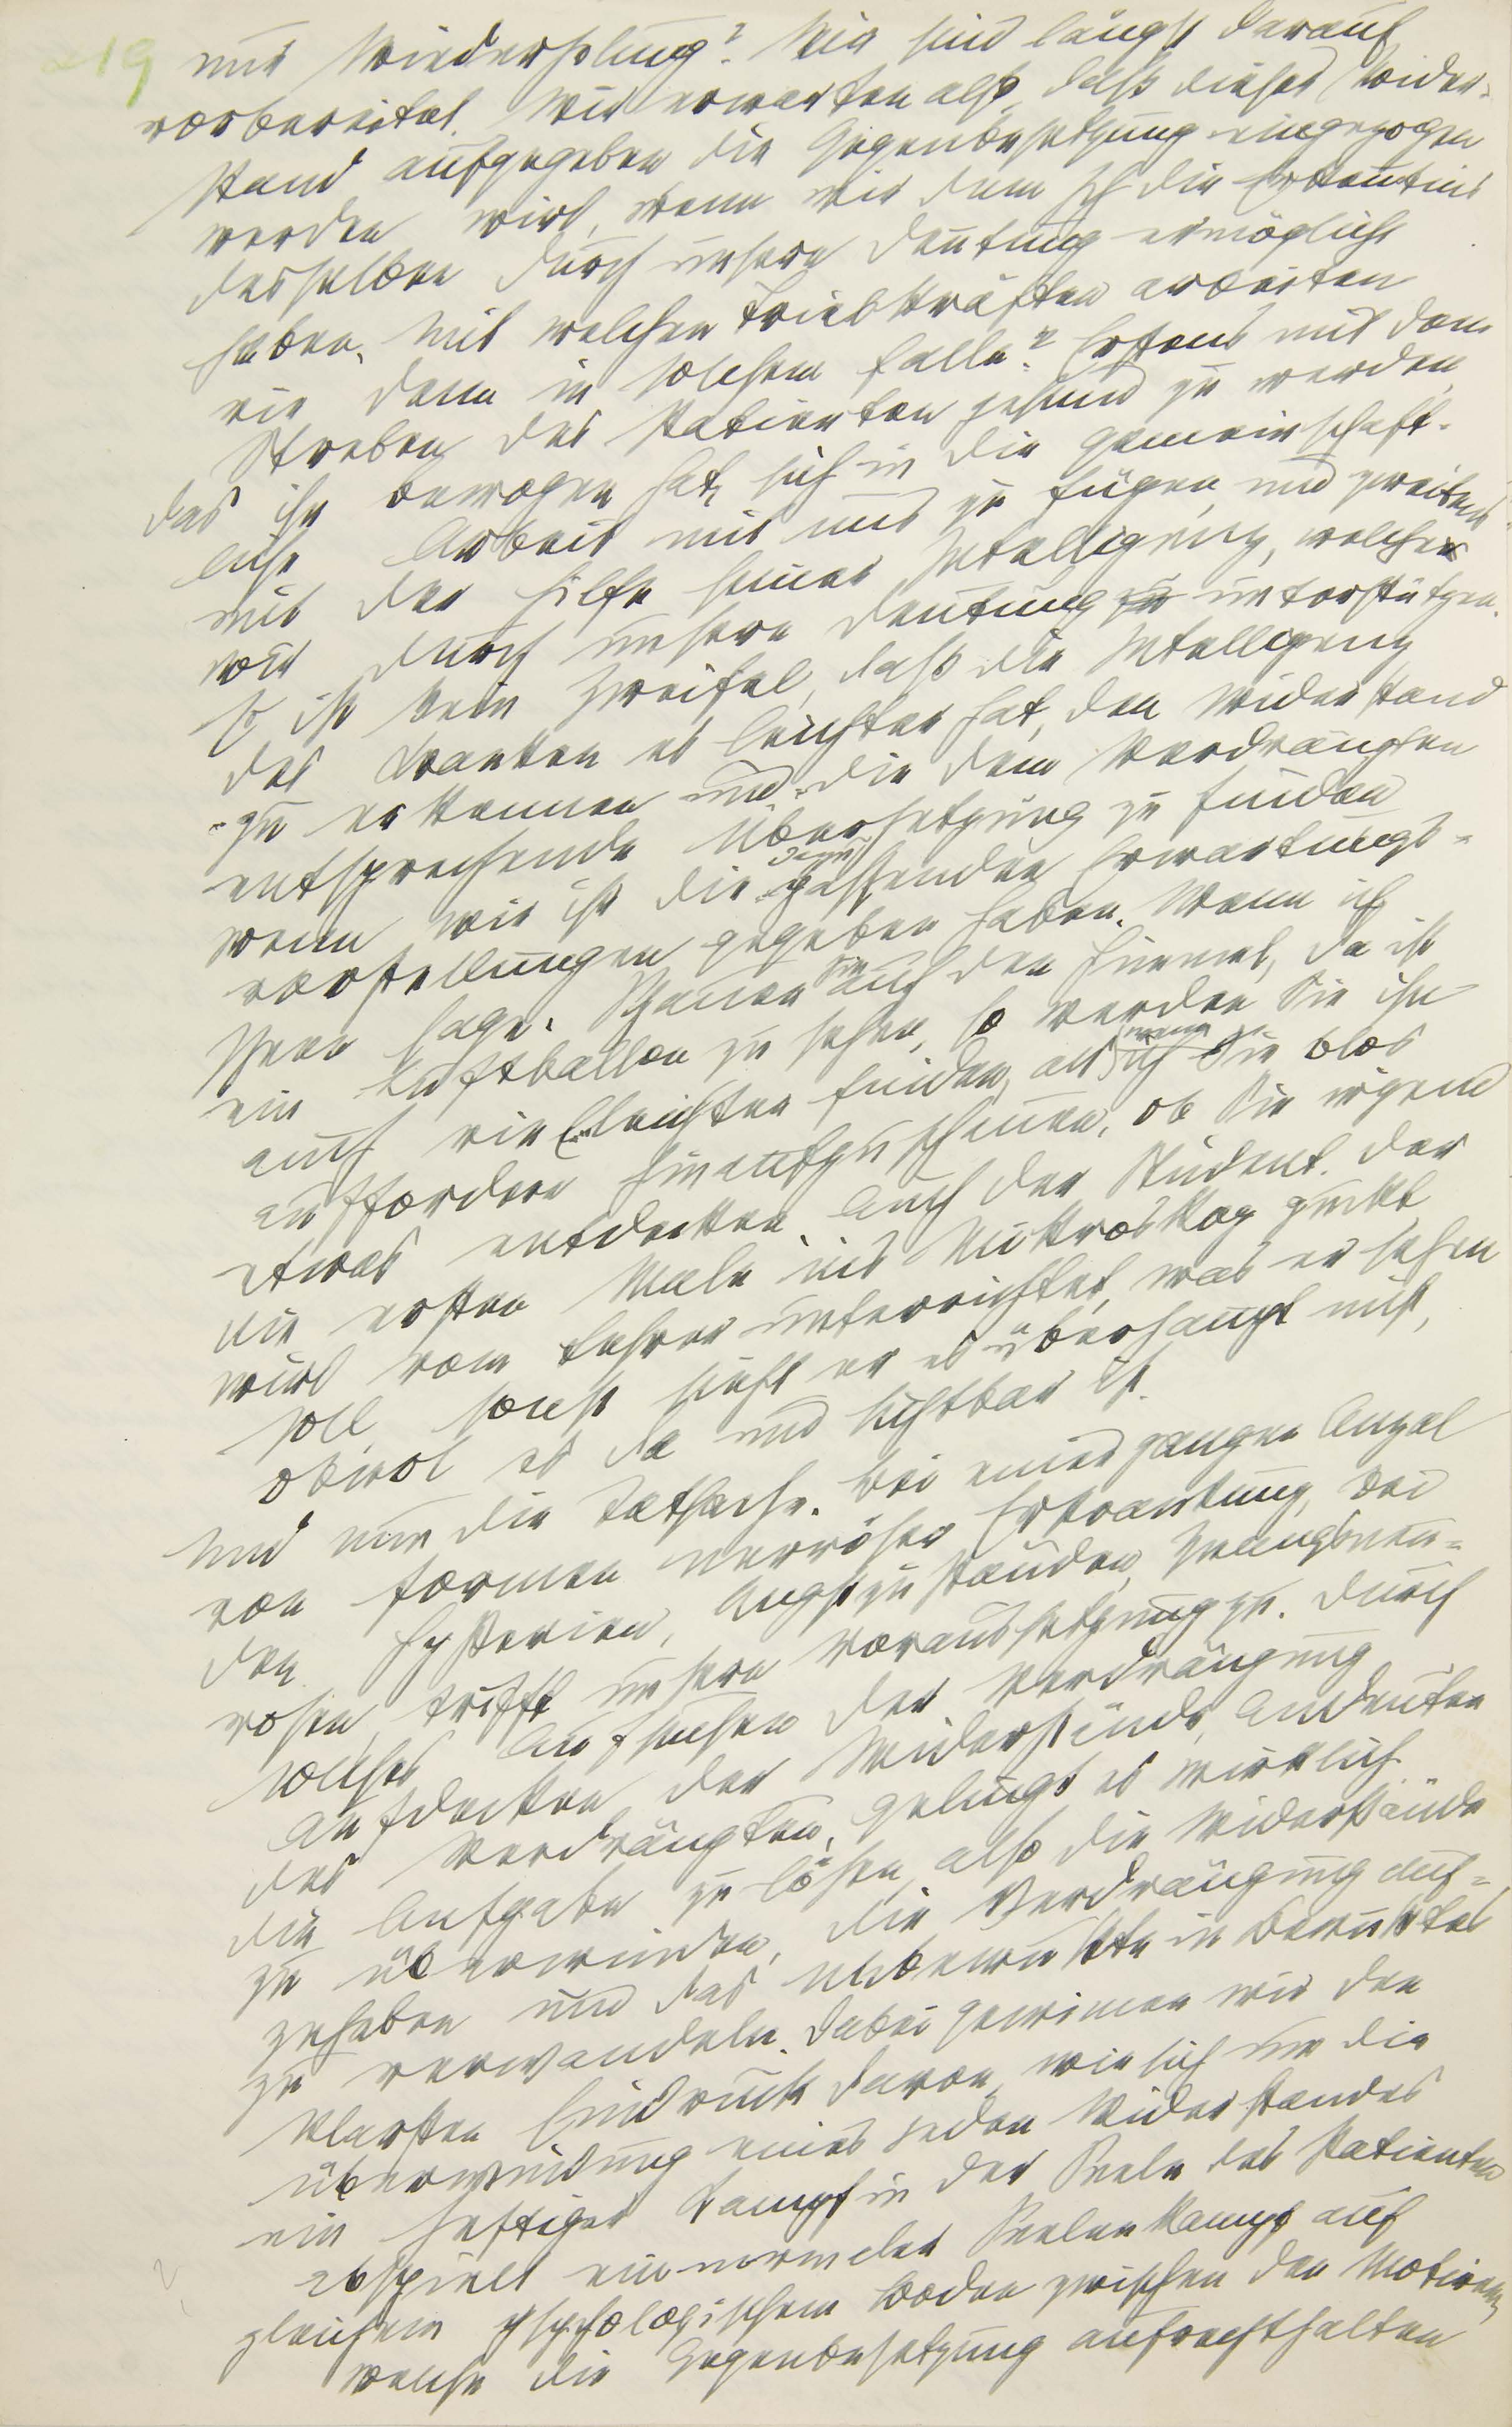 219 nur Wiederholung? Wir sind längst darauf
vorbereitet. Wir erwarten also, daß dieser Wider-
stand aufgegeben die Gegenbesetzung eingezogen
werden wird, wenn wir dem Ich die Erkenntnis
desselben durch unsere Deutung ermöglicht
haben. Mit welchen Triebkräften arbeiten
wir denn in solchem Falle? Erstens mit dem
Streben des Patienten gesund zu werden,
das ihn bewogen hat, sich in die gemeinschaft-
liche Arbeit mit uns zu fügen, und zweitens
mit der Hilfe seiner Intelligenz, welcher
wir durch unsere Deutung zu unterstützen.
Es ist kein Zweifel, daß die Intelligenz
des Kranken es leichter hat, den Widerstand
zu erkennen und die dem Verdrängten
entsprechende Übersetzung zu finden
wenn wir ihr die dazu passenden Erwartungs-
vorstellungen gegeben haben. Wenn ich
Ihnen sage: Schauen Sie auf den Himmel, da ist
ein Luftballon zu sehen, so werden Sie ihn
auch viel leichter finden, als wenn ich Sie blos
auffordere hinaufzuschauen, ob Sie irgend
etwas entdecken. Auch der Student. der
die ersten Male ins Mikroskop guckt,
wird vom Lehrer unterrichtet, was er sehen
soll, sonst sieht er es überhaupt nicht,
obwol es da und sichtbar ist.
Und nun die Tatsache. Bei einer ganzen Anzal
von Formen nervöser Erkrankung, bei
den Hysterien, Angstzuständen, Zwangsneu-
rosen, trifft unsere Voraussetzung zu. Durch
solches Aufsuchen der Verdrängung,
Aufdecken der Widerstände, Andeuten
des Verdrängten, gelingt es wirklich
die Aufgabe zu lösen, also die Widerstände
zu überwinden, die Verdrängung auf-
zuheben und das Unbewußte in Bewußtes
zu verwandeln. Dabei gewinnen wir den
klarsten Eindruck davon, wie sich um die
Überwindung eines jeden Widerstandes
ein heftiger Kampf in der Seele des Patienten
abspielt ein normaler Seelenkampf auf
gleichem psychologischem Boden zwischen den Motiven,
welche die Gegenbesetzung aufrechthalten